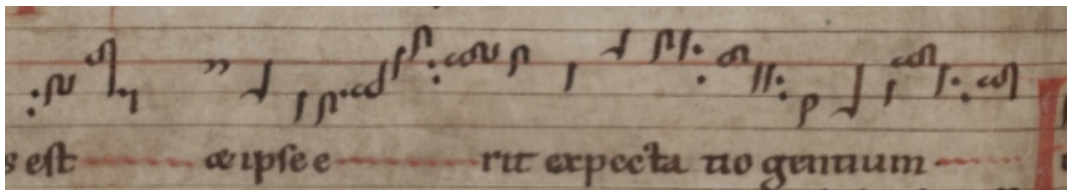 s est et ipse e rit expecta tio gentium